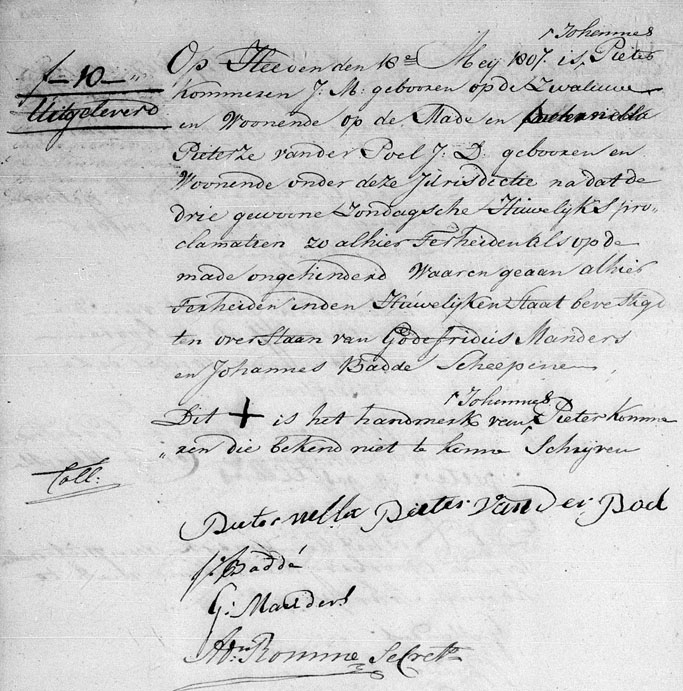 Johennes
f - 10 - „
Uitgeleverd
Op Heeden den 18e Meij 1807. is, Pieter
Kommezen J: M: gebooren op de Zwaluwe
en Woonende op de Made en Pieternella
Pieterze vander Poel J: D: gebooren en
Woonende onder deze Jurisdictie na dat de
drie gewoone Zondagsche Huwelijks pro-
clamatien zo alhier Terheiden als op de
made ongehinderd Waaren gegaan alhier
Terheiden in den Huwelijken Staat bevestigt
ten overstaan van Godefridus Manders
en Johannes Badde Scheepene
Johennes
Dit + is het handmerk van Pieter Komme
„ zen die bekend niet te konne Schrijven
Coll:
Pieternella Pieter Van der Poel
J: Baddé
G: Manders
Adn Romme Secrets